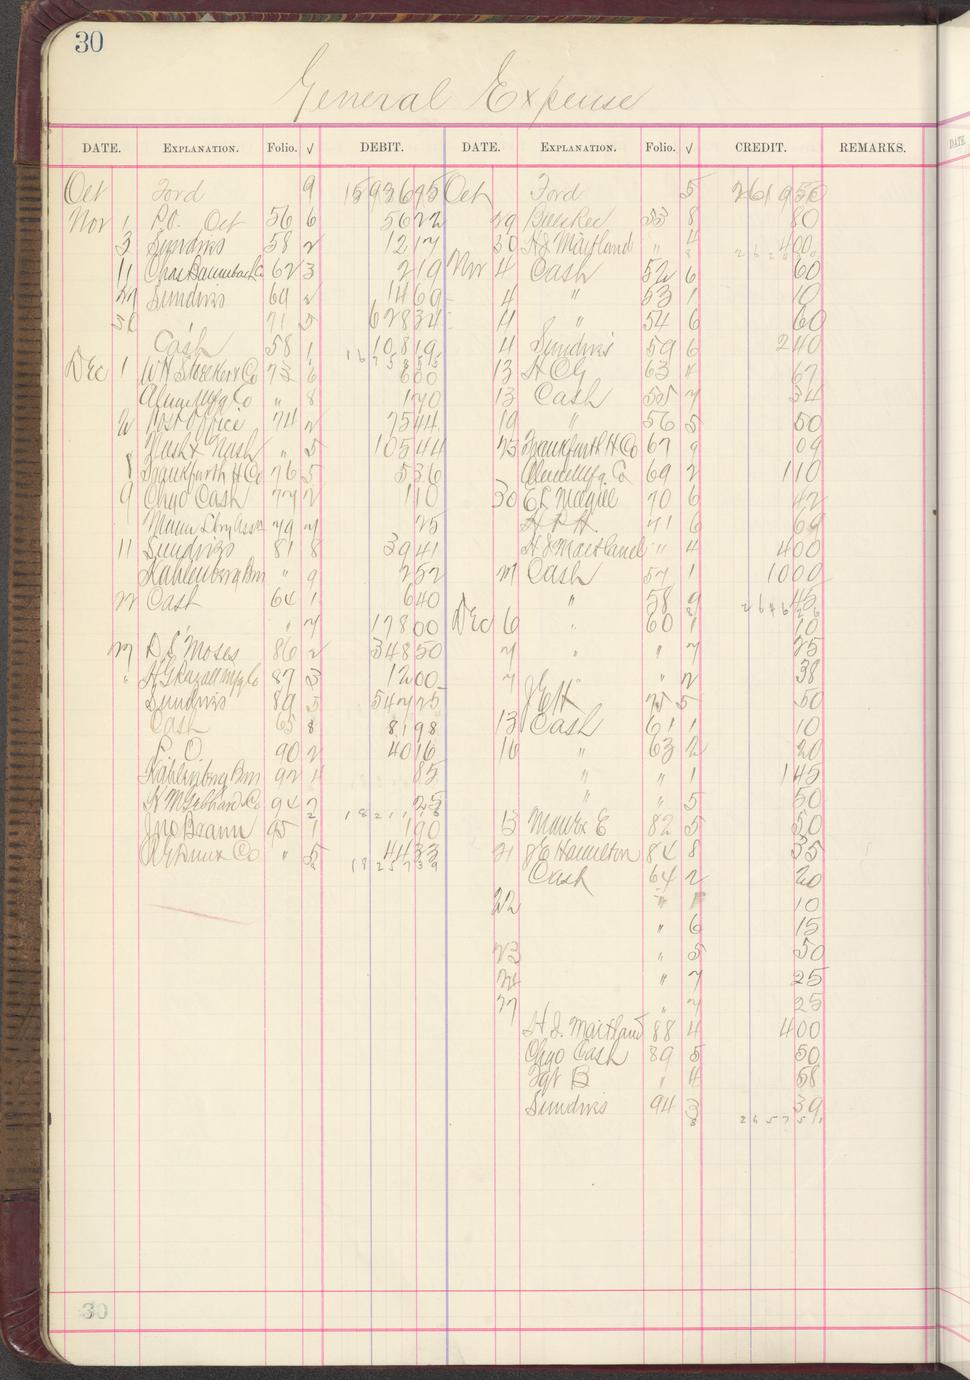 30
General Expense
DATE. EXPLANATION. Folio. √ DEBIT. DATE. EXPLANATION. Folio. √ CREDIT. REMARKS.
Oct Ford 9 15936 95 Oct Ford 5 2619 50
Nov 1 P.O. Oct 56 6 56 22 29 53 8 80
3 Sundries 58 2 12 17 30 H S Maitland " 4 4 00
11 Chas Baumbach Co 62 3 2 19 Nov 4 Cash 52 6 60
27 Sundries 69 2 14 69 4 " 53 1 10
30 71 5 628 34 4 " 54 6 60
Cash 58 1 108 19 4 Sundries 59 6 2 40
Dec 1 Co 73 6 6 00 13 H O G 63 4 67
Mfg Co " 8 1 70 13 Cash 55 7 34
2 Post Office 74 2 75 44 19 " 56 5 50
Nash & Nash " 5 105 44 25 Frankfurth H Co 67 9 09
8 Frankfurth H Co 76 5 5 36 Mfg. Co 69 2 1 10
9 Chgo Cash 77 2 1 10 30 E L Magill 70 6 42
79 7 25 71 6 69
11 Sundries 81 8 39 41 H S Maitland " 4 4 00
Kahlenberg Bros " 9 2 52 27 Cash 57 1 10 00
22 Cash 64 1 6 40 " 58 9 45
" 7 178 00 Dec 6 " 60 1 10
27 D S Moses 86 2 348 50 7 " " 7 25
" H G Razall Mfg Co 87 3 12 00 7 " " 2 38
Sundries 89 5 547 25 J E H 75 5 50
Cash 65 8 81 98 13 Cash 61 1 10
P. O. 90 2 40 16 16 " 63 2 20
Kahlenberg Bros 92 4 85 " " 1 1 45
H M Gebhard Co 94 2 25 " " 5 50
Jno Brann 95 1 1 90 13 E 82 5 50
Co " 5 44 33 21 J E Hamilton 84 8 35
Cash 64 2 20
22 " 1 10
" 6 15
23 " 5 50
24 " 7 25
27 " 7 25
H. S. Maitland 88 4 4 00
Chgo Cash 89 5 50
Fgt B " 4 68
Sundries 94 3 39
265751
30